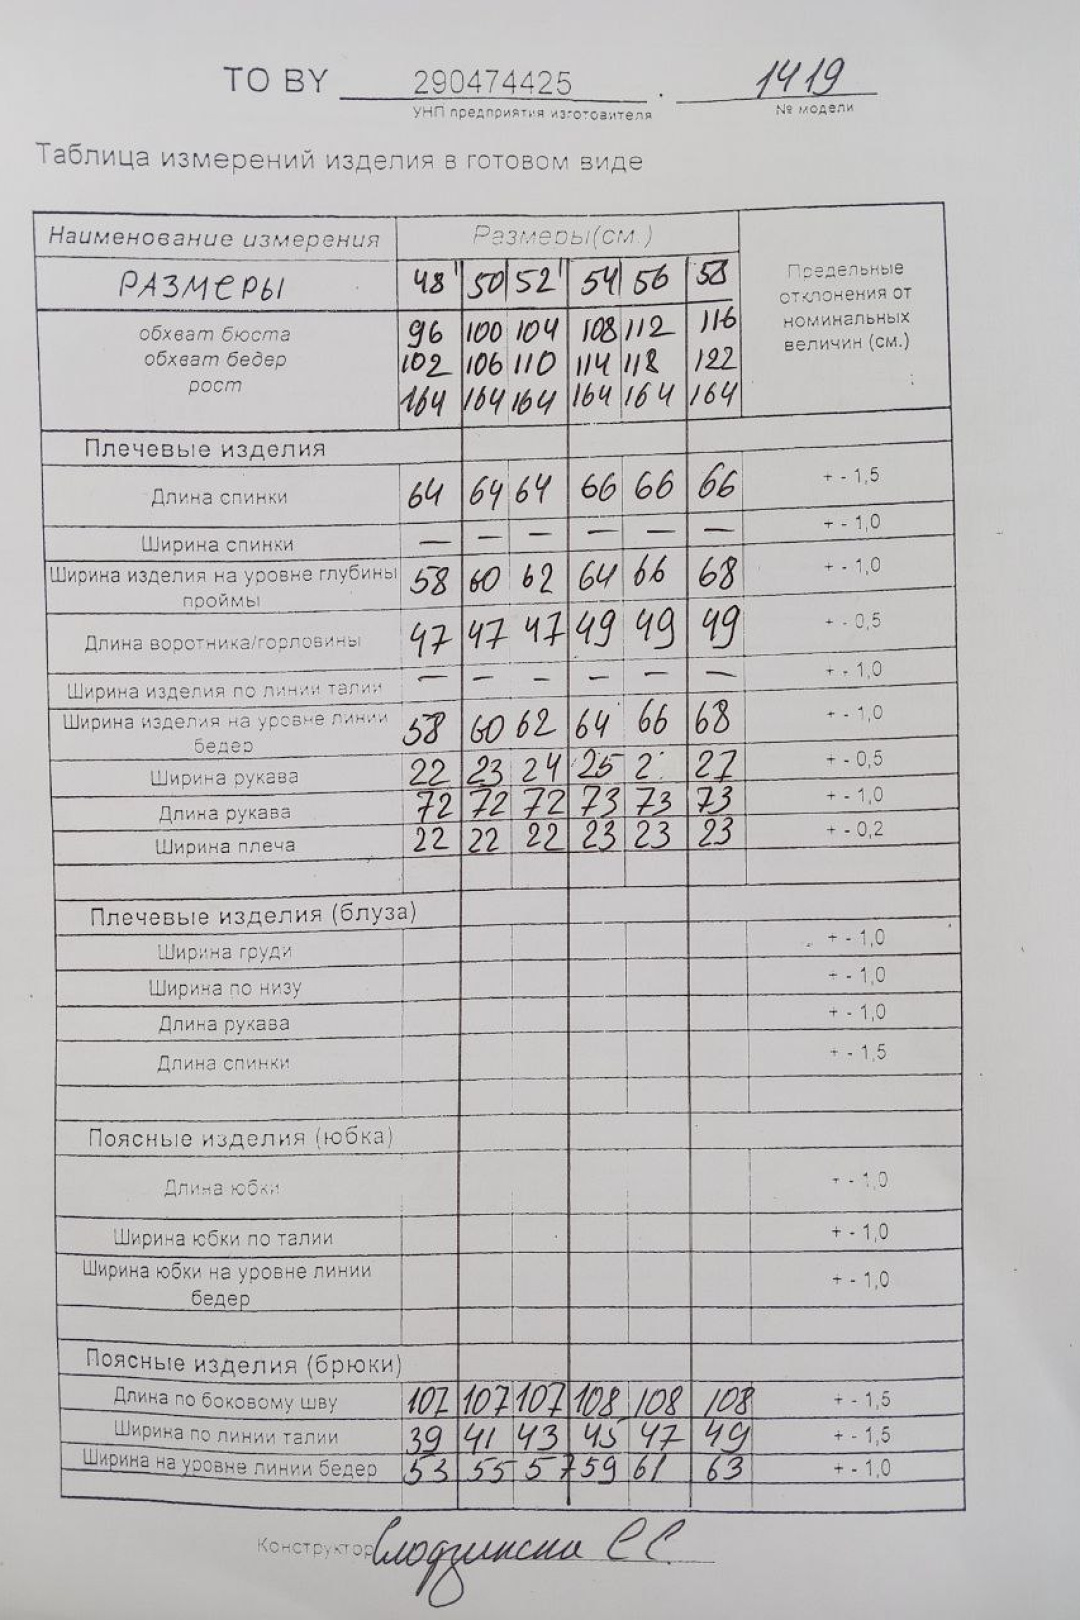 ТО BY 290474425 . 1419
УНП предприятия изготовителя № модели
Таблица измерений изделия в готовом виде
Наименование измерения Размеры(см.) Предельные отклонения от номинальных величин (см.)
РАЗМЕРЫ 48 50 52 54 56 58
обхват бюста 96 100 104 108 112 116
обхват бедер 102 106 110 114 118 122
рост 164 164 164 164 164 164
Плечевые изделия
Длина спинки 64 64 64 66 66 66 + - 1,5
Ширина спинки — — — — — — + - 1,0
Ширина изделия на уровне глубины проймы 58 60 62 64 66 68 + - 1,0
Длина воротника/горловины 47 47 47 49 49 49 + - 0,5
Ширина изделия по линии талии — — — — — — + - 1,0
Ширина изделия на уровне линии бедер 58 60 62 64 66 68 + - 1,0
Ширина рукава 22 23 24 25 2 27 + - 0,5
Длина рукава 72 72 72 73 73 73 + - 1,0
Ширина плеча 22 22 22 23 23 23 + - 0,2
Плечевые изделия (блуза)
Ширина груди + - 1,0
Ширина по низу + - 1,0
Длина рукава + - 1,0
Длина спинки + - 1,5
Поясные изделия (юбка)
Длина юбки + - 1,0
Ширина юбки по талии + - 1,0
Ширина юбки на уровне линии бедер + - 1,0
Поясные изделия (брюки)
Длина по боковому шву 107 107 107 108 108 108 + - 1,5
Ширина по линии талии 39 41 43 45 47 49 + - 1,5
Ширина на уровне линии бедер 53 55 57 59 61 63 + - 1,0
Конструктор